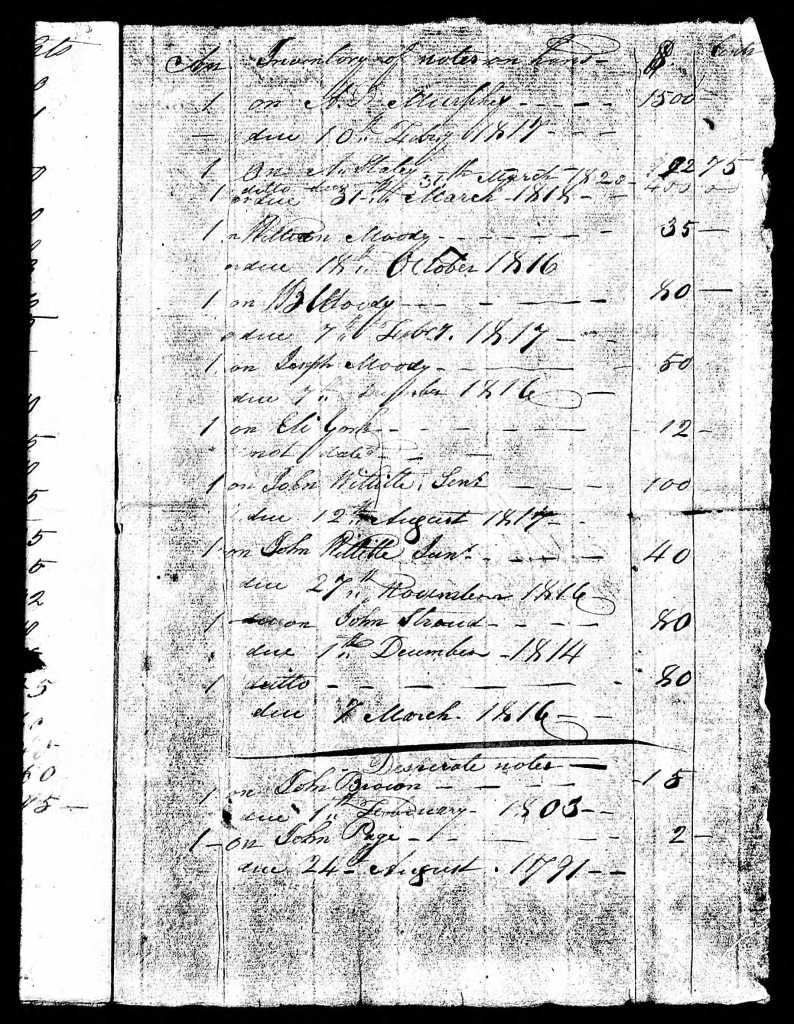 An Inventory of notes on hand $ Cents
1 on A. D. Murphey 1500
due 10th Febry 1817
1 On A. Staley 75
1 ditto due 31th March 1820 400
due 31th March 1818
1 William Moody 35
due 18th October 1816
1 on Moody 80
due 7th 1817
1 on Joseph Moody 50
due 7th 1816
1 on Eli York 12
not dated
1 on John Wilkitte, Senr 100
due 12th August 1817
1 on John Junr 40
due 27th November 1816
1 on John Stroud 80
due 1th December 1814
1 ditto 80
due 7 March 1816
Desperate notes
1 on John Brown 15
due 1th Februuary 1803
1 on John Page 2
due 24th August 1791